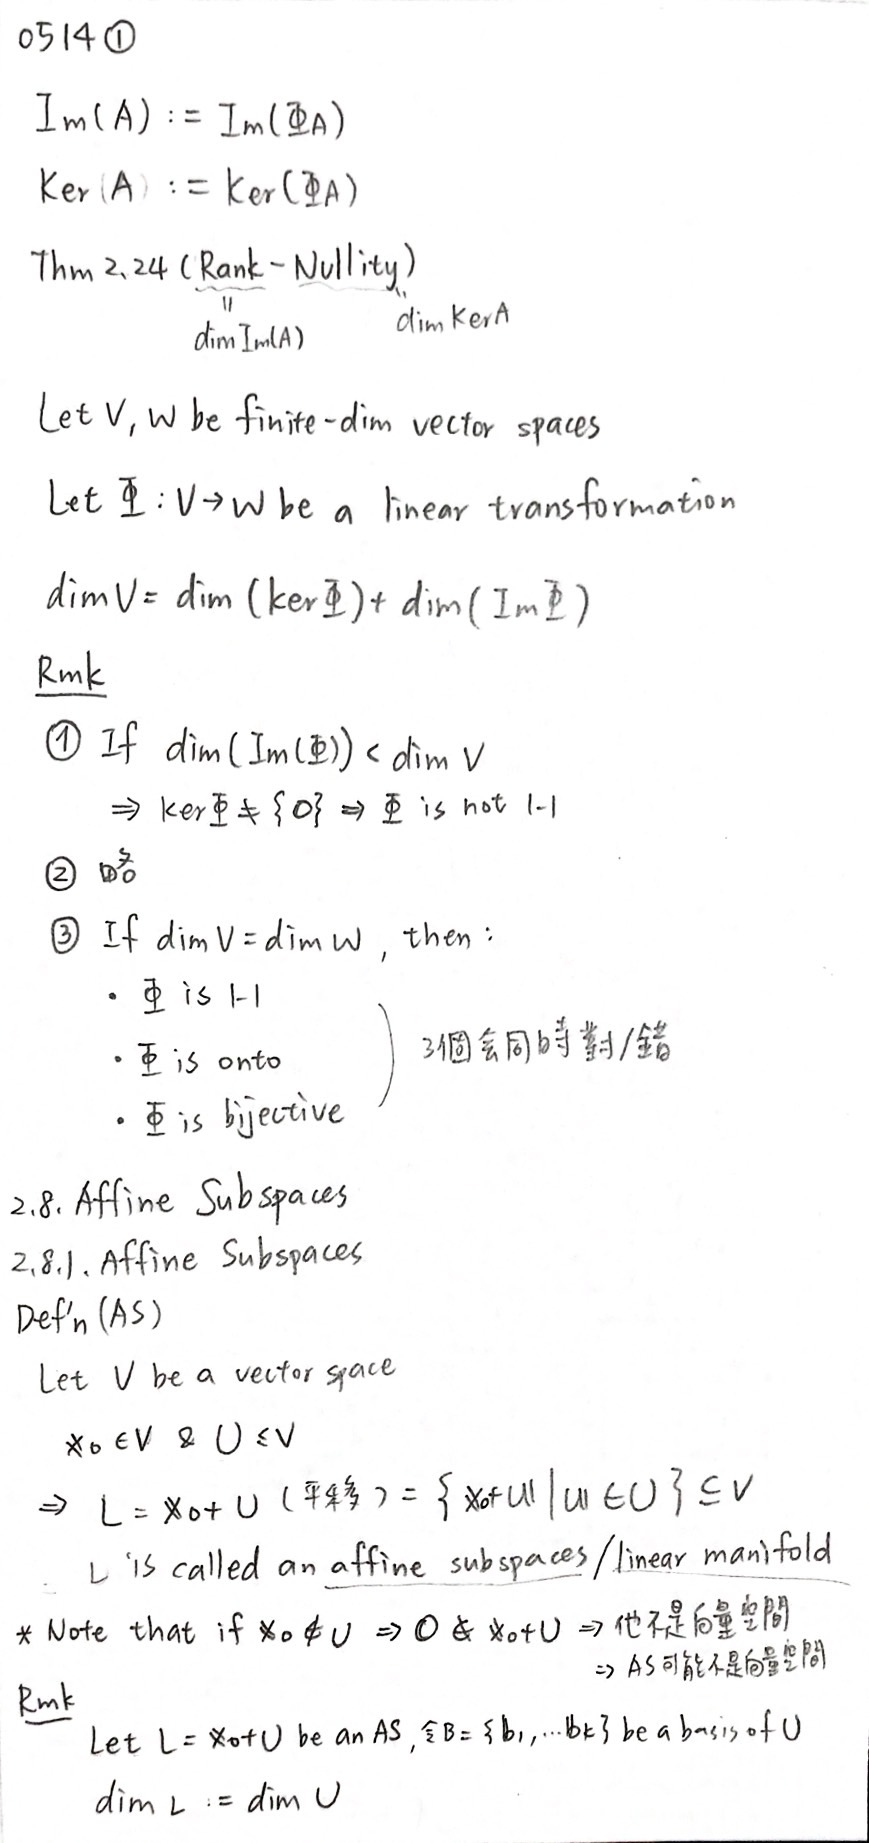 0514①
Im(A) := Im(ΦA)
Ker(A) := Ker(ΦA)
Thm 2.24 (Rank-Nullity)
" dim Im(A) " dim KerA
Let V, W be finite-dim vector spaces
Let Φ : V→W be a linear transformation
dim V = dim (kerΦ) + dim( ImΦ )
Rmk
① If dim(Im(Φ)) < dim V
⇒ kerΦ ≠ {0} ⇒ Φ is not 1-1
② 略
③ If dim V = dim W, then :
• Φ is 1-1
• Φ is onto
• Φ is bijective
3個會同時對/錯
2.8. Affine Subspaces
2.8.1. Affine Subspaces
Def'n (AS)
Let V be a vector space
x0 ∈ V & U ≤ V
⇒ L = x0 + U (平移) = { x0 + u | u ∈ U } ⊆ V
L is called an affine subspaces/linear manifold
* Note that if x0 ∉ U ⇒ 0 ∉ x0+U ⇒ 他不是向量空間
⇒ AS可能不是向量空間
Rmk
Let L = x0+U be an AS, 令B = {b1, ... bk} be a basis of U
dim L := dim U